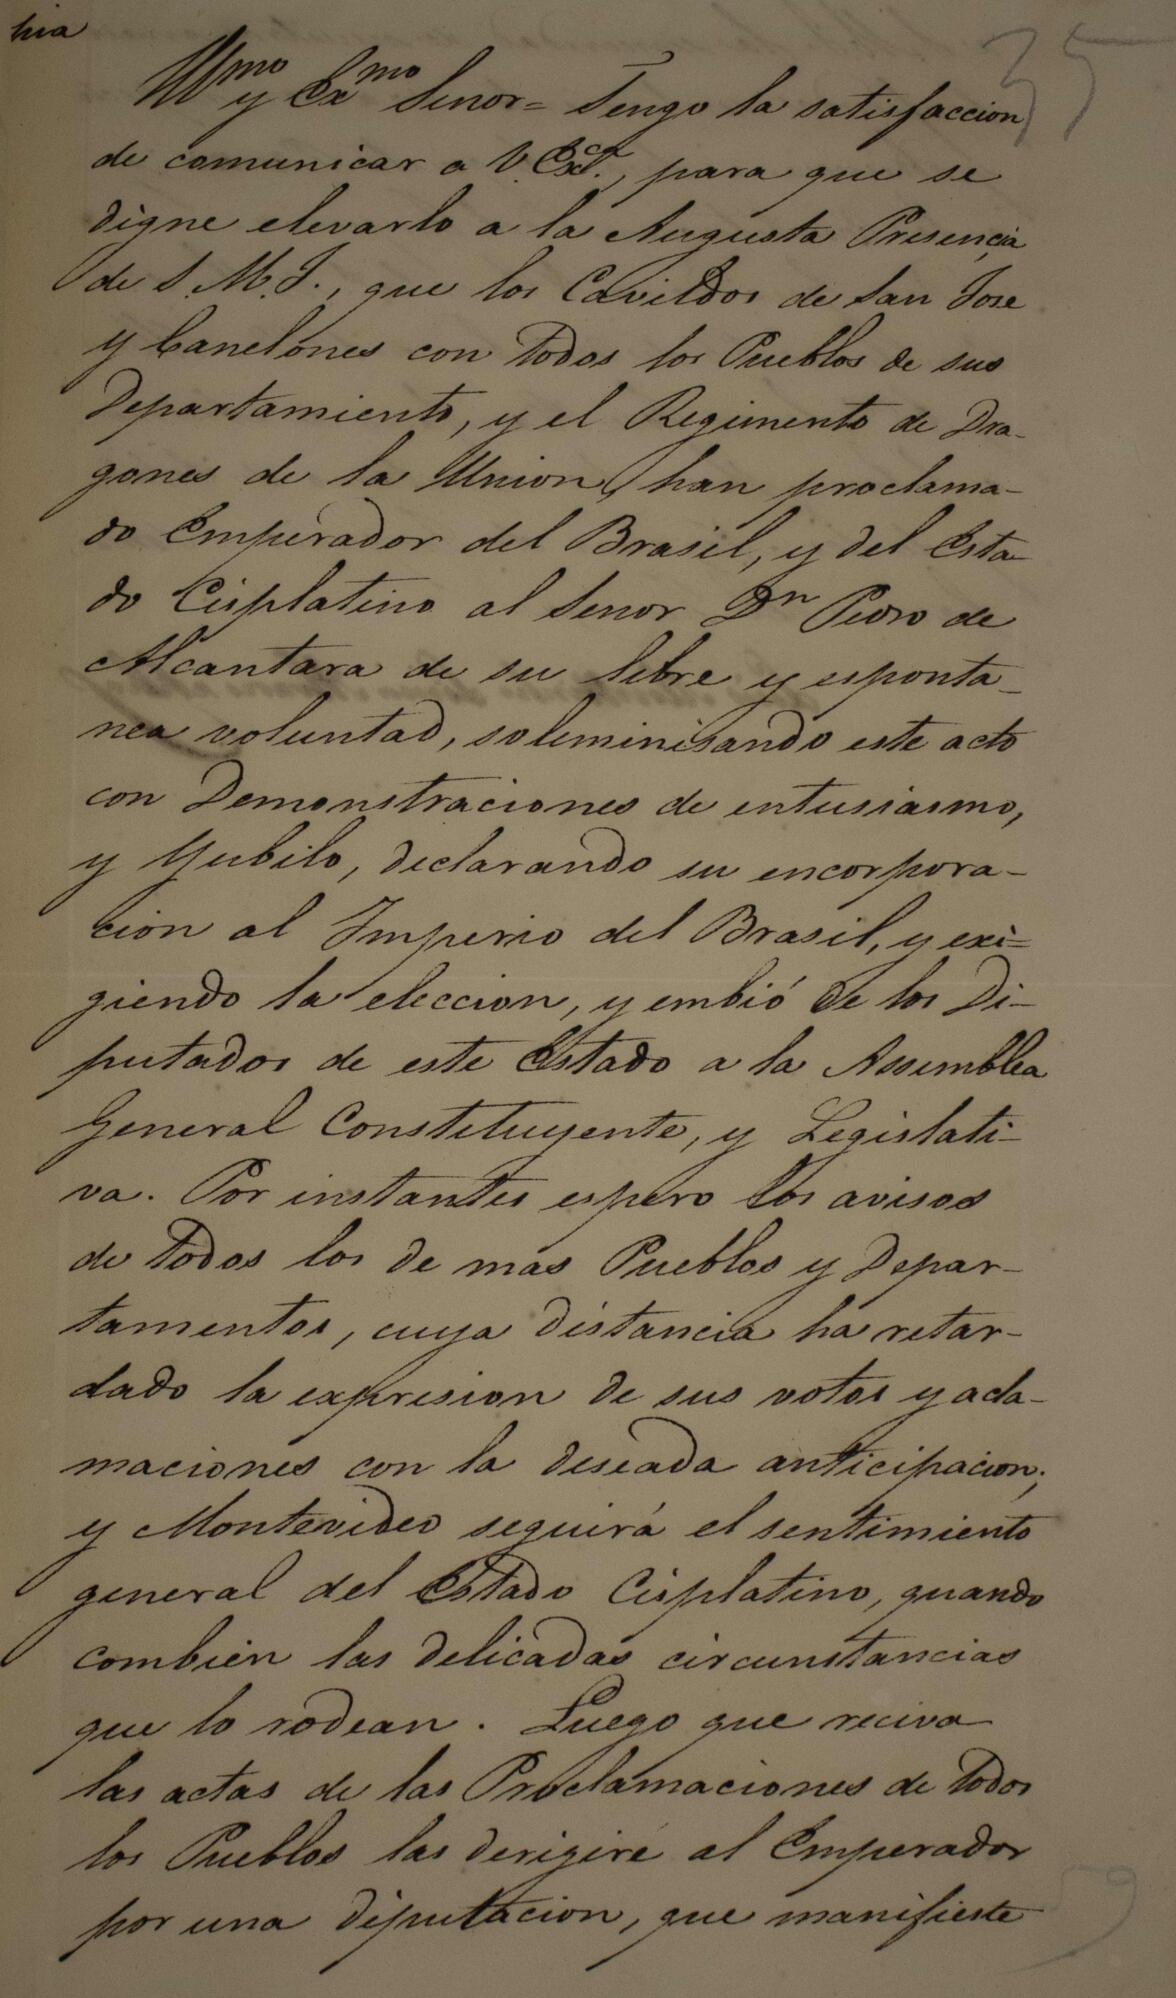 hia
35
Illmo y Exmo Senor = Tengo la satisfaccion
de comunicar a V. Exca., para que se
digne elevarlo a la Augusta Presencia
de S. M. I., que los Cavildos de San Jose
y Canelones con Todos los Pueblos de sus
Departamiento, y el Regimento de Dra-
gones de la Union, han proclama-
do Emperador del Brasil, y del Esta-
do Cisplatino al Senor Dn Pedro de
Alcantara de su libre y esponta-
nea voluntad, soleminisando este acto
con Demonstraciones de entusiasmo,
y Yubilo, declarando su encorpora-
cion al Imperio del Brasil, y exi=
giendo la eleccion, y embió de los Di-
putados de este Estado a la Assemblea
General Constituyente, y Legislati-
va. Por instantes espero los avisos
de Todos los de mas Pueblos y Depar-
tamentos, cuya distancia ha retar-
dado la expresion de sus votos y acla-
maciones con la deseada anticipacion;
y Montevideo seguirá el sentimiento
general del Estado Cisplatino, quando
combien las delicadas circunstancias
que lo rodean. Luego que reciva
las actas de las Proclamaciones de Todos
los Pueblos las derigiré al Emperador
por una diputacion, que manifieste
59